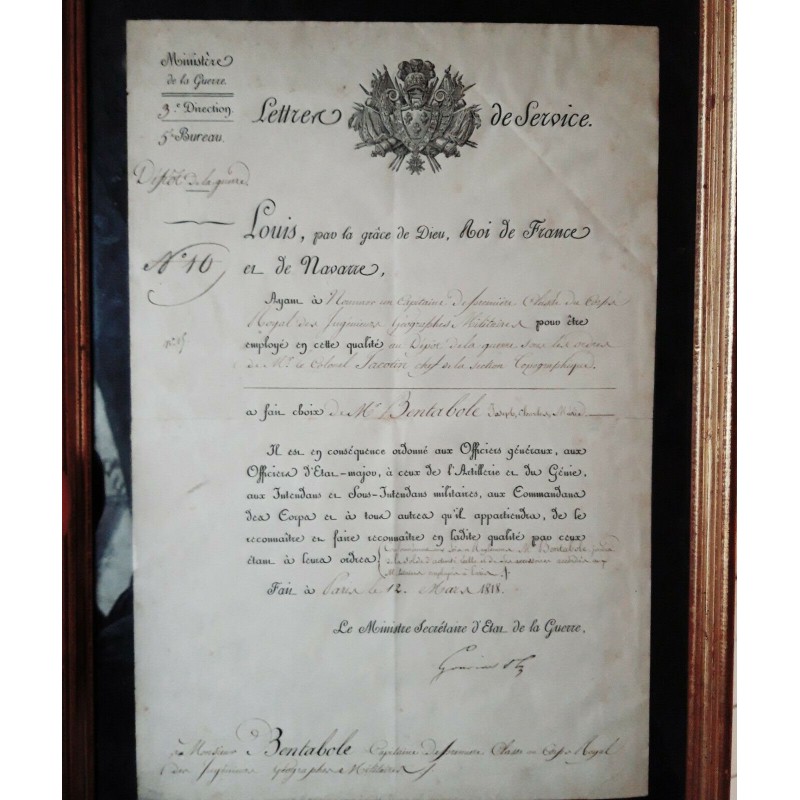 Ministère
de la Guerre.
3.e Direction.
5.e Bureau.
Dépôt de la guerre
N.o 16
Lettres de Service.
Louis, par la grâce de Dieu, Roi de France
et de Navarre,
Ayant à Nommer un Capitaine de première Classe du Corps
Royal des Ingénieurs Géographes Militaires pour être
employé en cette qualité au Dépôt de la guerre sous les ordres
de Mr. le Colonel Jacotin chef de la section Topographique.
a fait choix de Mr. Bentabole Joseph, Charles, Marie
Il est en conséquence ordonné aux Officiers généraux, aux
Officiers d'Etat-major, à ceux de l'Artillerie et du Génie,
aux Intendans et Sous-Intendans militaires, aux Commandans
des Corps et à tous autres qu'il appartiendra, de le
reconnaître et faire reconnaître en ladite qualité par ceux
étant à leurs ordres
Mr. Bentabole
Fait à Paris le 12 Mars 1818.
Le Ministre Secrétaire d'Etat de la Guerre,
Gouvion St Cyr
à Monsieur Bentabole Capitaine de première Classe au Corps Royal
des Ingénieurs géographes Militaires